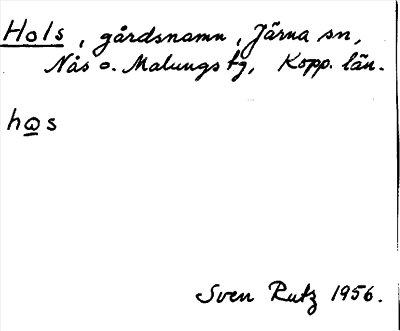 Hols, gårdsnamn, Järna sn,
Nås o. Malungs tg, Kopp. län.
hɷs
Sven Rutz 1956.